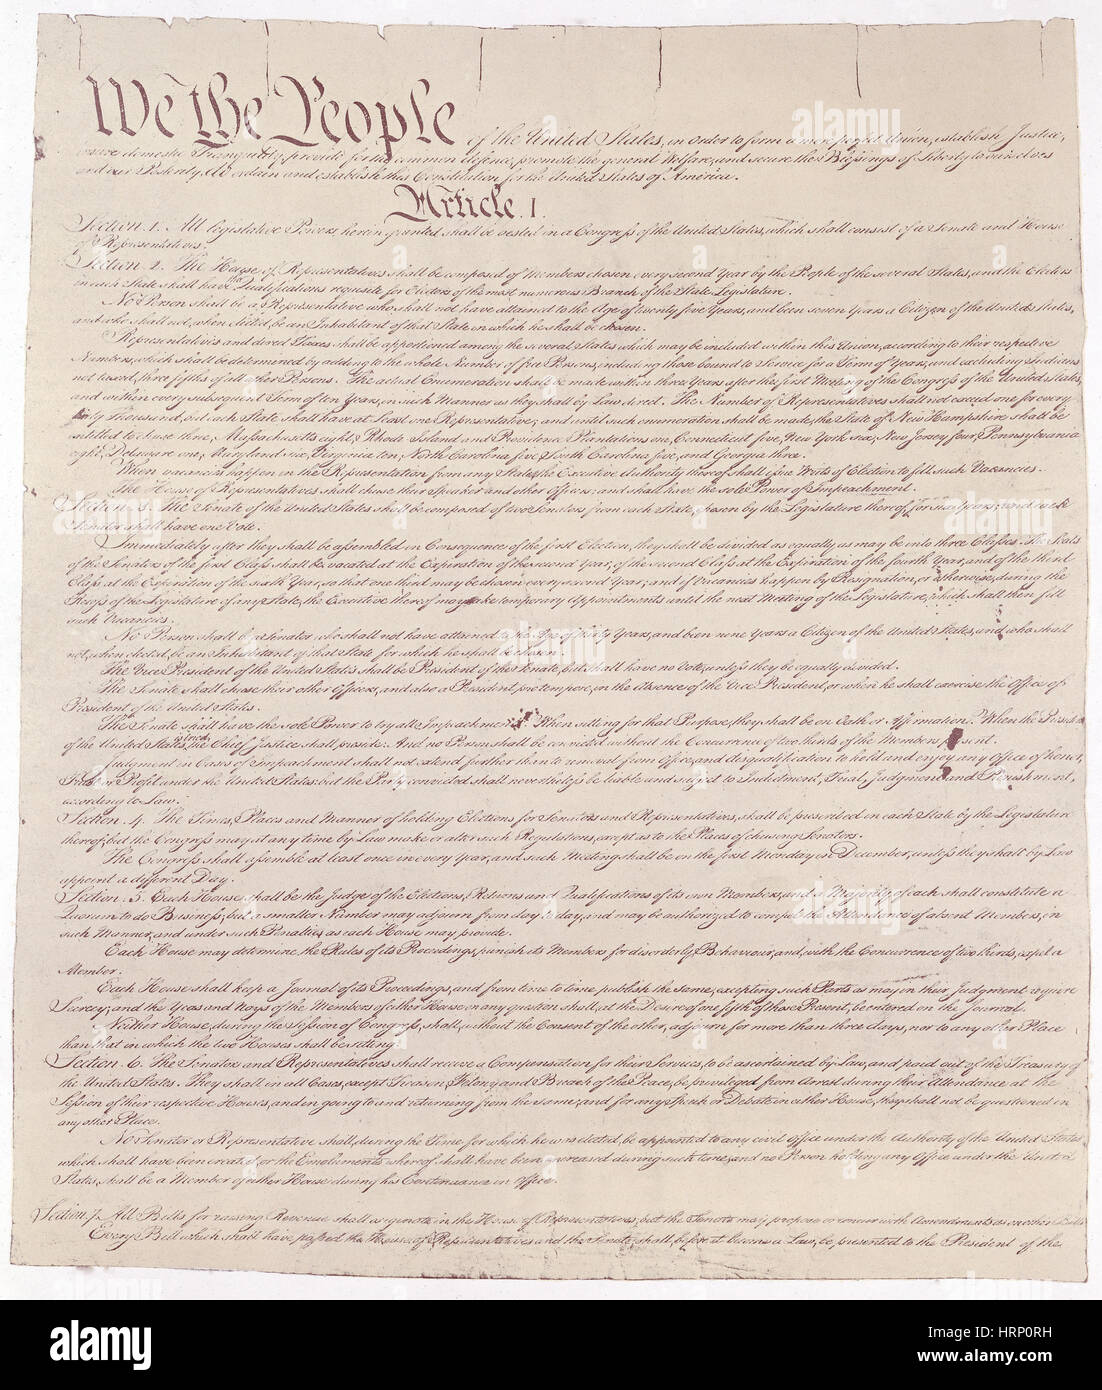 We the People of the United States, in Order to form a more perfect Union, establish Justice,
insure domestic Tranquility, provide for the common defence, promote the general Welfare, and secure the Blessings of Liberty to ourselves
and our Posterity, do ordain and establish this Constitution for the United States of America.
Article. I.
Section. 1. All legislative Powers herein granted shall be vested in a Congress of the United States, which shall consist of a Senate and House
of Representatives.
Section. 2. The House of Representatives shall be composed of Members chosen every second Year by the People of the several States, and the Electors
in each State shall have the Qualifications requisite for Electors of the most numerous Branch of the State Legislature.
No Person shall be a Representative who shall not have attained to the Age of twenty five Years, and been seven Years a Citizen of the United States,
and who shall not, when elected, be an Inhabitant of that State in which he shall be chosen.
Representatives and direct Taxes shall be apportioned among the several States which may be included within this Union, according to their respective
Numbers, which shall be determined by adding to the whole Number of free Persons, including those bound to Service for a Term of Years, and excluding Indians
not taxed, three fifths of all other Persons. The actual Enumeration shall be made within three Years after the first Meeting of the Congress of the United States,
and within every subsequent Term of ten Years, in such Manner as they shall by Law direct. The Number of Representatives shall not exceed one for every
thirty Thousand, but each State shall have at Least one Representative; and until such enumeration shall be made, the State of New Hampshire shall be
entitled to chuse three, Massachusetts eight, Rhode Island and Providence Plantations one, Connecticut five, New York six, New Jersey four, Pennsylvania
eight, Delaware one, Maryland six, Virginia ten, North Carolina five, South Carolina five, and Georgia three.
When vacancies happen in the Representation from any State, the Executive Authority thereof shall issue Writs of Election to fill such Vacancies.
The House of Representatives shall chuse their Speaker and other Officers; and shall have the sole Power of Impeachment.
Section. 3. The Senate of the United States shall be composed of two Senators from each State, chosen by the Legislature thereof, for six Years; and each
Senator shall have one Vote.
Immediately after they shall be assembled in Consequence of the first Election, they shall be divided as equally as may be into three Classes. The Seats
of the Senators of the first Class shall be vacated at the Expiration of the second Year, of the second Class at the Expiration of the fourth Year, and of the third
Class at the Expiration of the sixth Year, so that one third may be chosen every second Year; and if Vacancies happen by Resignation, or otherwise, during the
Recess of the Legislature of any State, the Executive thereof may make temporary Appointments until the next Meeting of the Legislature, which shall then fill
such Vacancies.
No Person shall be a Senator who shall not have attained to the Age of thirty Years, and been nine Years a Citizen of the United States, and who shall
not, when elected, be an Inhabitant of that State for which he shall be chosen.
The Vice President of the United States shall be President of the Senate, but shall have no Vote, unless they be equally divided.
The Senate shall chuse their other Officers, and also a President pro tempore, in the Absence of the Vice President, or when he shall exercise the Office of
President of the United States.
The Senate shall have the sole Power to try all Impeachments. When sitting for that Purpose, they shall be on Oath or Affirmation. When the President
of the United States is tried, the Chief Justice shall preside: And no Person shall be convicted without the Concurrence of two thirds of the Members present.
Judgment in Cases of Impeachment shall not extend further than to removal from Office, and disqualification to hold and enjoy any Office of honor,
Trust or Profit under the United States: but the Party convicted shall nevertheless be liable and subject to Indictment, Trial, Judgment and Punishment,
according to Law.
Section. 4. The Times, Places and Manner of holding Elections for Senators and Representatives, shall be prescribed in each State by the Legislature
thereof; but the Congress may at any time by Law make or alter such Regulations, except as to the Places of chusing Senators.
The Congress shall assemble at least once in every Year, and such Meeting shall be on the first Monday in December, unless they shall by Law
appoint a different Day.
Section. 5. Each House shall be the Judge of the Elections, Returns and Qualifications of its own Members, and a Majority of each shall constitute a
Quorum to do Business; but a smaller Number may adjourn from day to day, and may be authorized to compel the Attendance of absent Members, in
such Manner, and under such Penalties as each House may provide.
Each House may determine the Rules of its Proceedings, punish its Members for disorderly Behaviour, and, with the Concurrence of two thirds, expel a
Member.
Each House shall keep a Journal of its Proceedings, and from time to time publish the same, excepting such Parts as may in their Judgment require
Secrecy; and the Yeas and Nays of the Members of either House on any question shall, at the Desire of one fifth of those Present, be entered on the Journal.
Neither House, during the Session of Congress, shall, without the Consent of the other, adjourn for more than three days, nor to any other Place
than that in which the two Houses shall be sitting.
Section. 6. The Senators and Representatives shall receive a Compensation for their Services, to be ascertained by Law, and paid out of the Treasury of
the United States. They shall in all Cases, except Treason, Felony and Breach of the Peace, be privileged from Arrest during their Attendance at the
Session of their respective Houses, and in going to and returning from the same; and for any Speech or Debate in either House, they shall not be questioned in
any other Place.
No Senator or Representative shall, during the Time for which he was elected, be appointed to any civil Office under the Authority of the United States,
which shall have been created, or the Emoluments whereof shall have been encreased during such time; and no Person holding any Office under the United
States, shall be a Member of either House during his Continuance in Office.
Section. 7. All Bills for raising Revenue shall originate in the House of Representatives; but the Senate may propose or concur with Amendments as on other Bills
Every Bill which shall have passed the House of Representatives and the Senate, shall, before it become a Law, be presented to the President of the
alamy
Image ID: HRP0RH
www.alamy.com